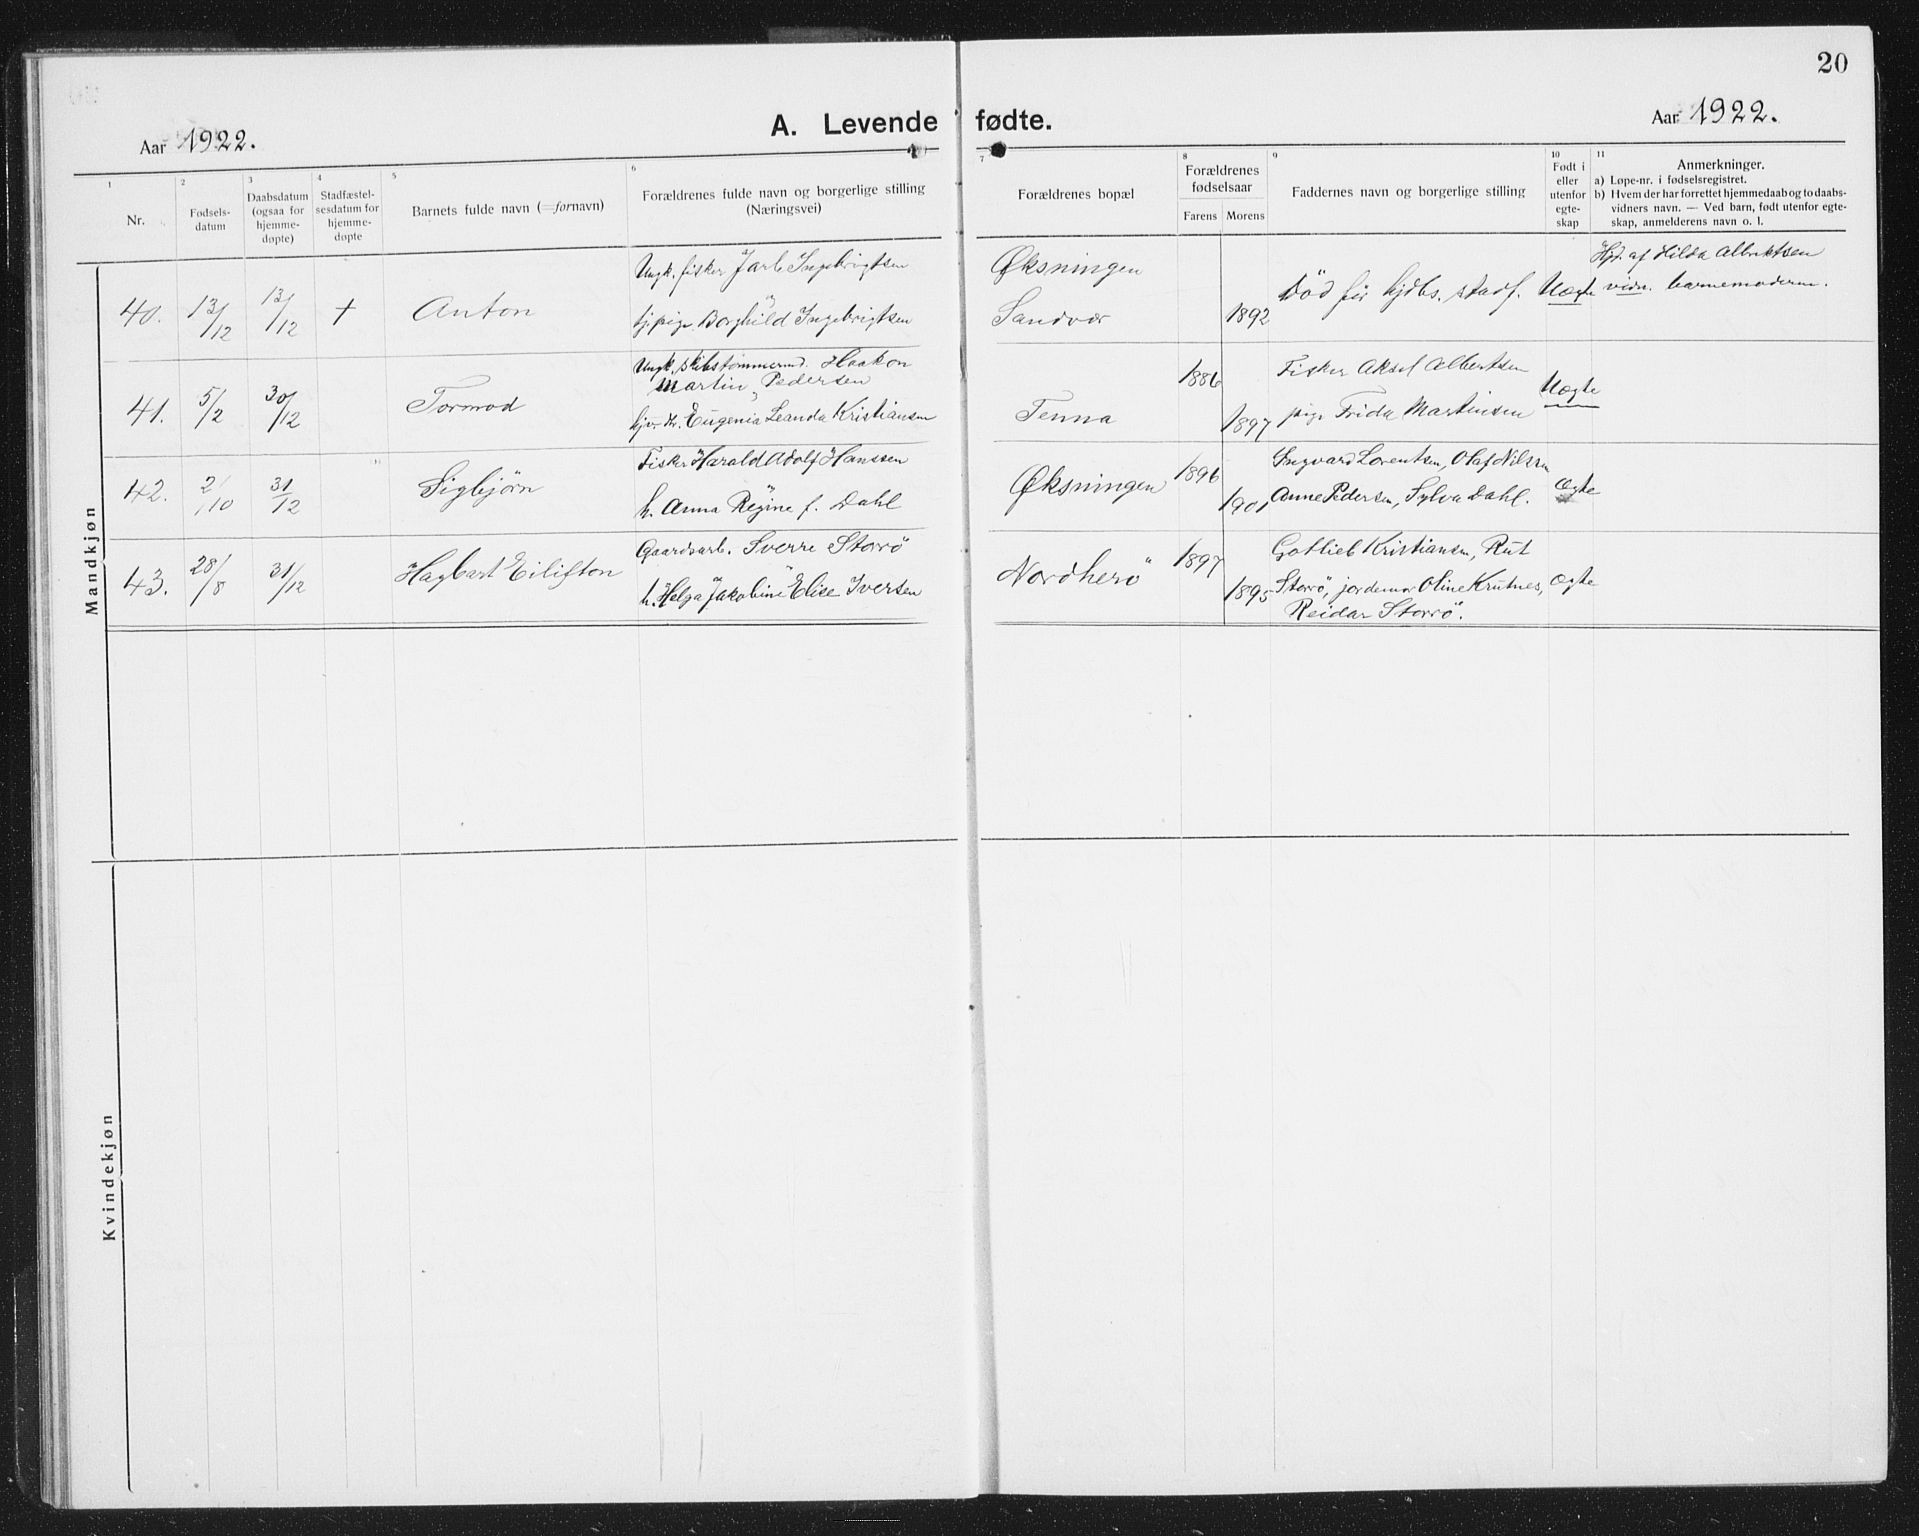 20
Aar 1922.
A. Levende fødte.
Aar 1922.
1 2 3 4 5 6 7 8 9 10 11
Nr.
Fødsels-
datum
Daabsdatum
(ogsaa for
hjemme-
døpte)
Stadfæstel-
sesdatum for
hjemme-
døpte
Barnets fulde navn (= fornavn)
Forældrenes fulde navn og borgerlige stilling
(Næringsvei)
Forældrenes bopæl
Forældrenes
fødselsaar
Farens Morens
Faddernes navn og borgerlige stilling
Født i
eller
utenfor
egte-
skap
Anmerkninger.
a) Løpe-nr. i fødselsregistret.
b) Hvem der har forrettet hjemmedaab og to daabs-
vidners navn. — Ved barn, født utenfor egte-
skap, anmelderens navn o. l.
Mandkjøn
Ungk. fisker Jarl Ingebrigtsen Øksningen Hjd. af Hilda Albrektsen
40. 13/12 13/12 † Anton tj.pige Borghild Ingebrigtsen Sandvær 1892 Død før hjdbs. stadf. Uegte vidn. barnemoderen.
Ungk. skibstømmermd. Haakon 1886 Fisker Aksel Albertsen
Martin Pedersen
41. 5/2 30/12 Tormod Eugenia Leanda Kristiansen Tenna 1897 pige Frida Martinsen Uegte
Fisker Harald Adolf Hanssen 1896 Ingvard Lorentsen, Olaf Nilsen
42. 2/10 31/12 Sigbjørn h. Anna Regine f. Dahl Øksningen 1901 Anne Pedersen, Sylva Dahl. Ægte
Gaardsarb. Sverre Storrö 1897 Gotlieb Kristiansen, Rut
43. 28/8 31/12 Hagbart Eilifton h. Helga Jakobine Elise Iversen Nordherö 1895 Storrö, jordemor Oline Krutnes, Ægte
Reidar Storrö.
Kvindekjøn